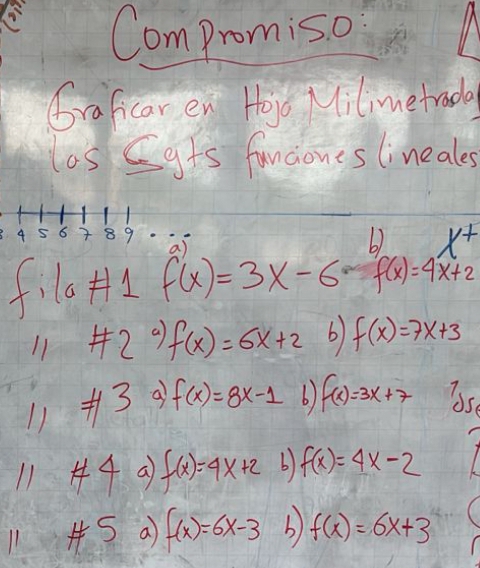 Compromiso:
Graficar en Hoja Milimetrada
las Sgts funciones lineales
4 5 6 7 8 9 ...
x+
fila #1 a) f(x)=3x-6 b) f(x)=4x+2
" #2 a) f(x)=6x+2 b) f(x)=7x+3
" #3 a) f(x)=8x-1 b) f(x)=3x+7
" #4 a) f(x)=4x+2 b) f(x)=4x-2
" #5 a) f(x)=6x-3 b) f(x)=6x+3